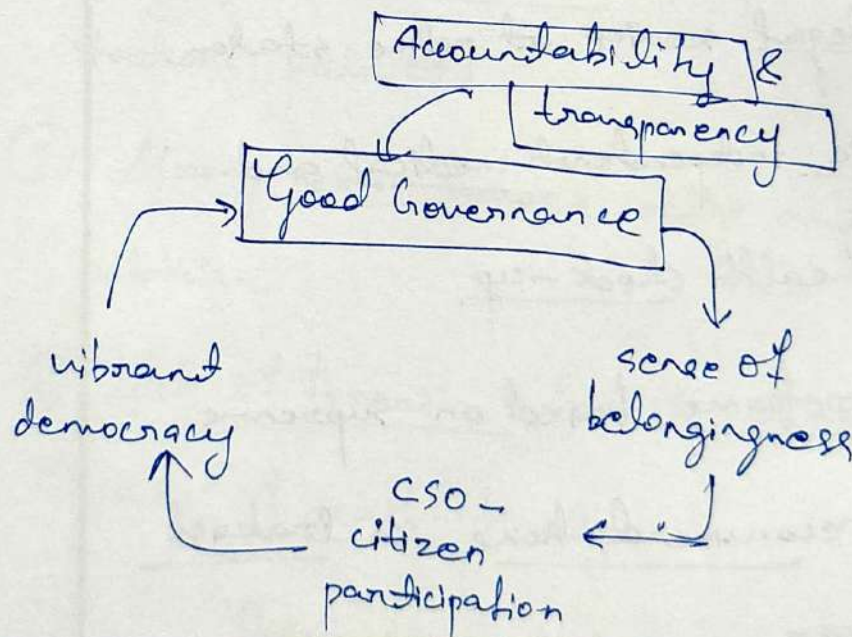 Accountability &
transparency
Good Governance
vibrant
democracy
sense of
belongingness
CSO -
citizen
participation